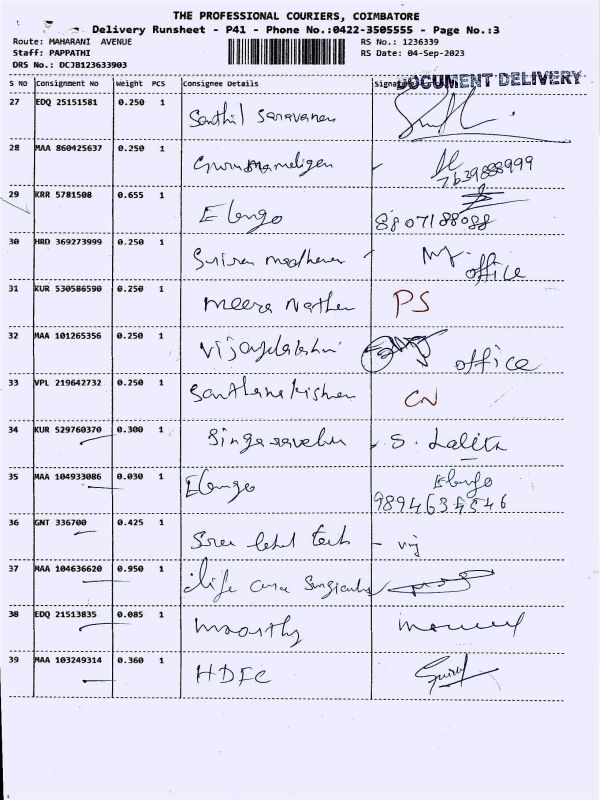 THE PROFESSIONAL COURIERS, COIMBATORE
Delivery Runsheet - P41 - Phone No.:0422-3505555 - Page No.:3
Route: MAHARANI AVENUE
RS No.: 1236339
Staff: PAPPATHI
RS Date: 04-Sep-2023
DRS No.: DCJB123633903
DOCUMENT DELIVERY
S NO Consignment No Weight PCS Consignee Details
27 EDQ 25151581 0.250 1 Senthil Saravanan
28 MAA 860425637 0.250 1
7639888999
29 KRR 5781508 0.655 1 Elango
8807188088
30 HRD 369273999 0.250 1
office
31 KUR 530586590 0.250 1 Meera Nathan PS
32 MAA 101265356 0.250 1 Vijayalakshmi office
33 VPL 219642732 0.250 1 CN
34 KUR 529760370 0.300 1 Singaravelu S. Lalita
35 MAA 104933086 0.030 1 Elango Elango
9894634546
36 GNT 336700 0.425 1 - vij
37 MAA 104636620 0.950 1 life care Surgicals
38 EDQ 21513835 0.085 1 Moorthy
39 MAA 103249314 0.360 1 HDFC